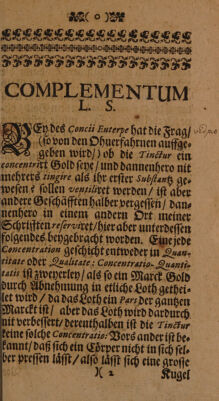 ( o )
COMPLEMENTUM
L. S.
BEy des Concii Euterpe hat die Frag/
(so von den Ohnerfahrnen auffge-
geben wird) ob die Tinctur ein
concentrirt Gold seye / und dannenhero nit
mehrers tingire als ihr erster Substantz ge-
wesen? sollen ventilirt werden / ist aber
andere Geschäfften halber vergessen / dan-
nenhero in einem andern Ort meiner
Schrifften reservirt / hier aber unterdessen
folgendes beygebracht worden. Eine jede
Concentration geschicht entweder in Quan-
titate oder Qualitate: Concentratio Quanti-
tatis ist zweyerley / als so ein Marck Gold
durch Abnehmung in etliche Loth getheil-
let wird / da das Loth ein Pars der gantzen
Marckt ist / aber das Loth wird dardurch
nit verbessert / derenthalben ist die Tinctur
keine solche Concentratio: Vors ander ist be-
kannt / daß sich ein Cörper nicht in sich sel-
ber pressen lässt / also lässt sich eine grosse
)( 2 Kugel